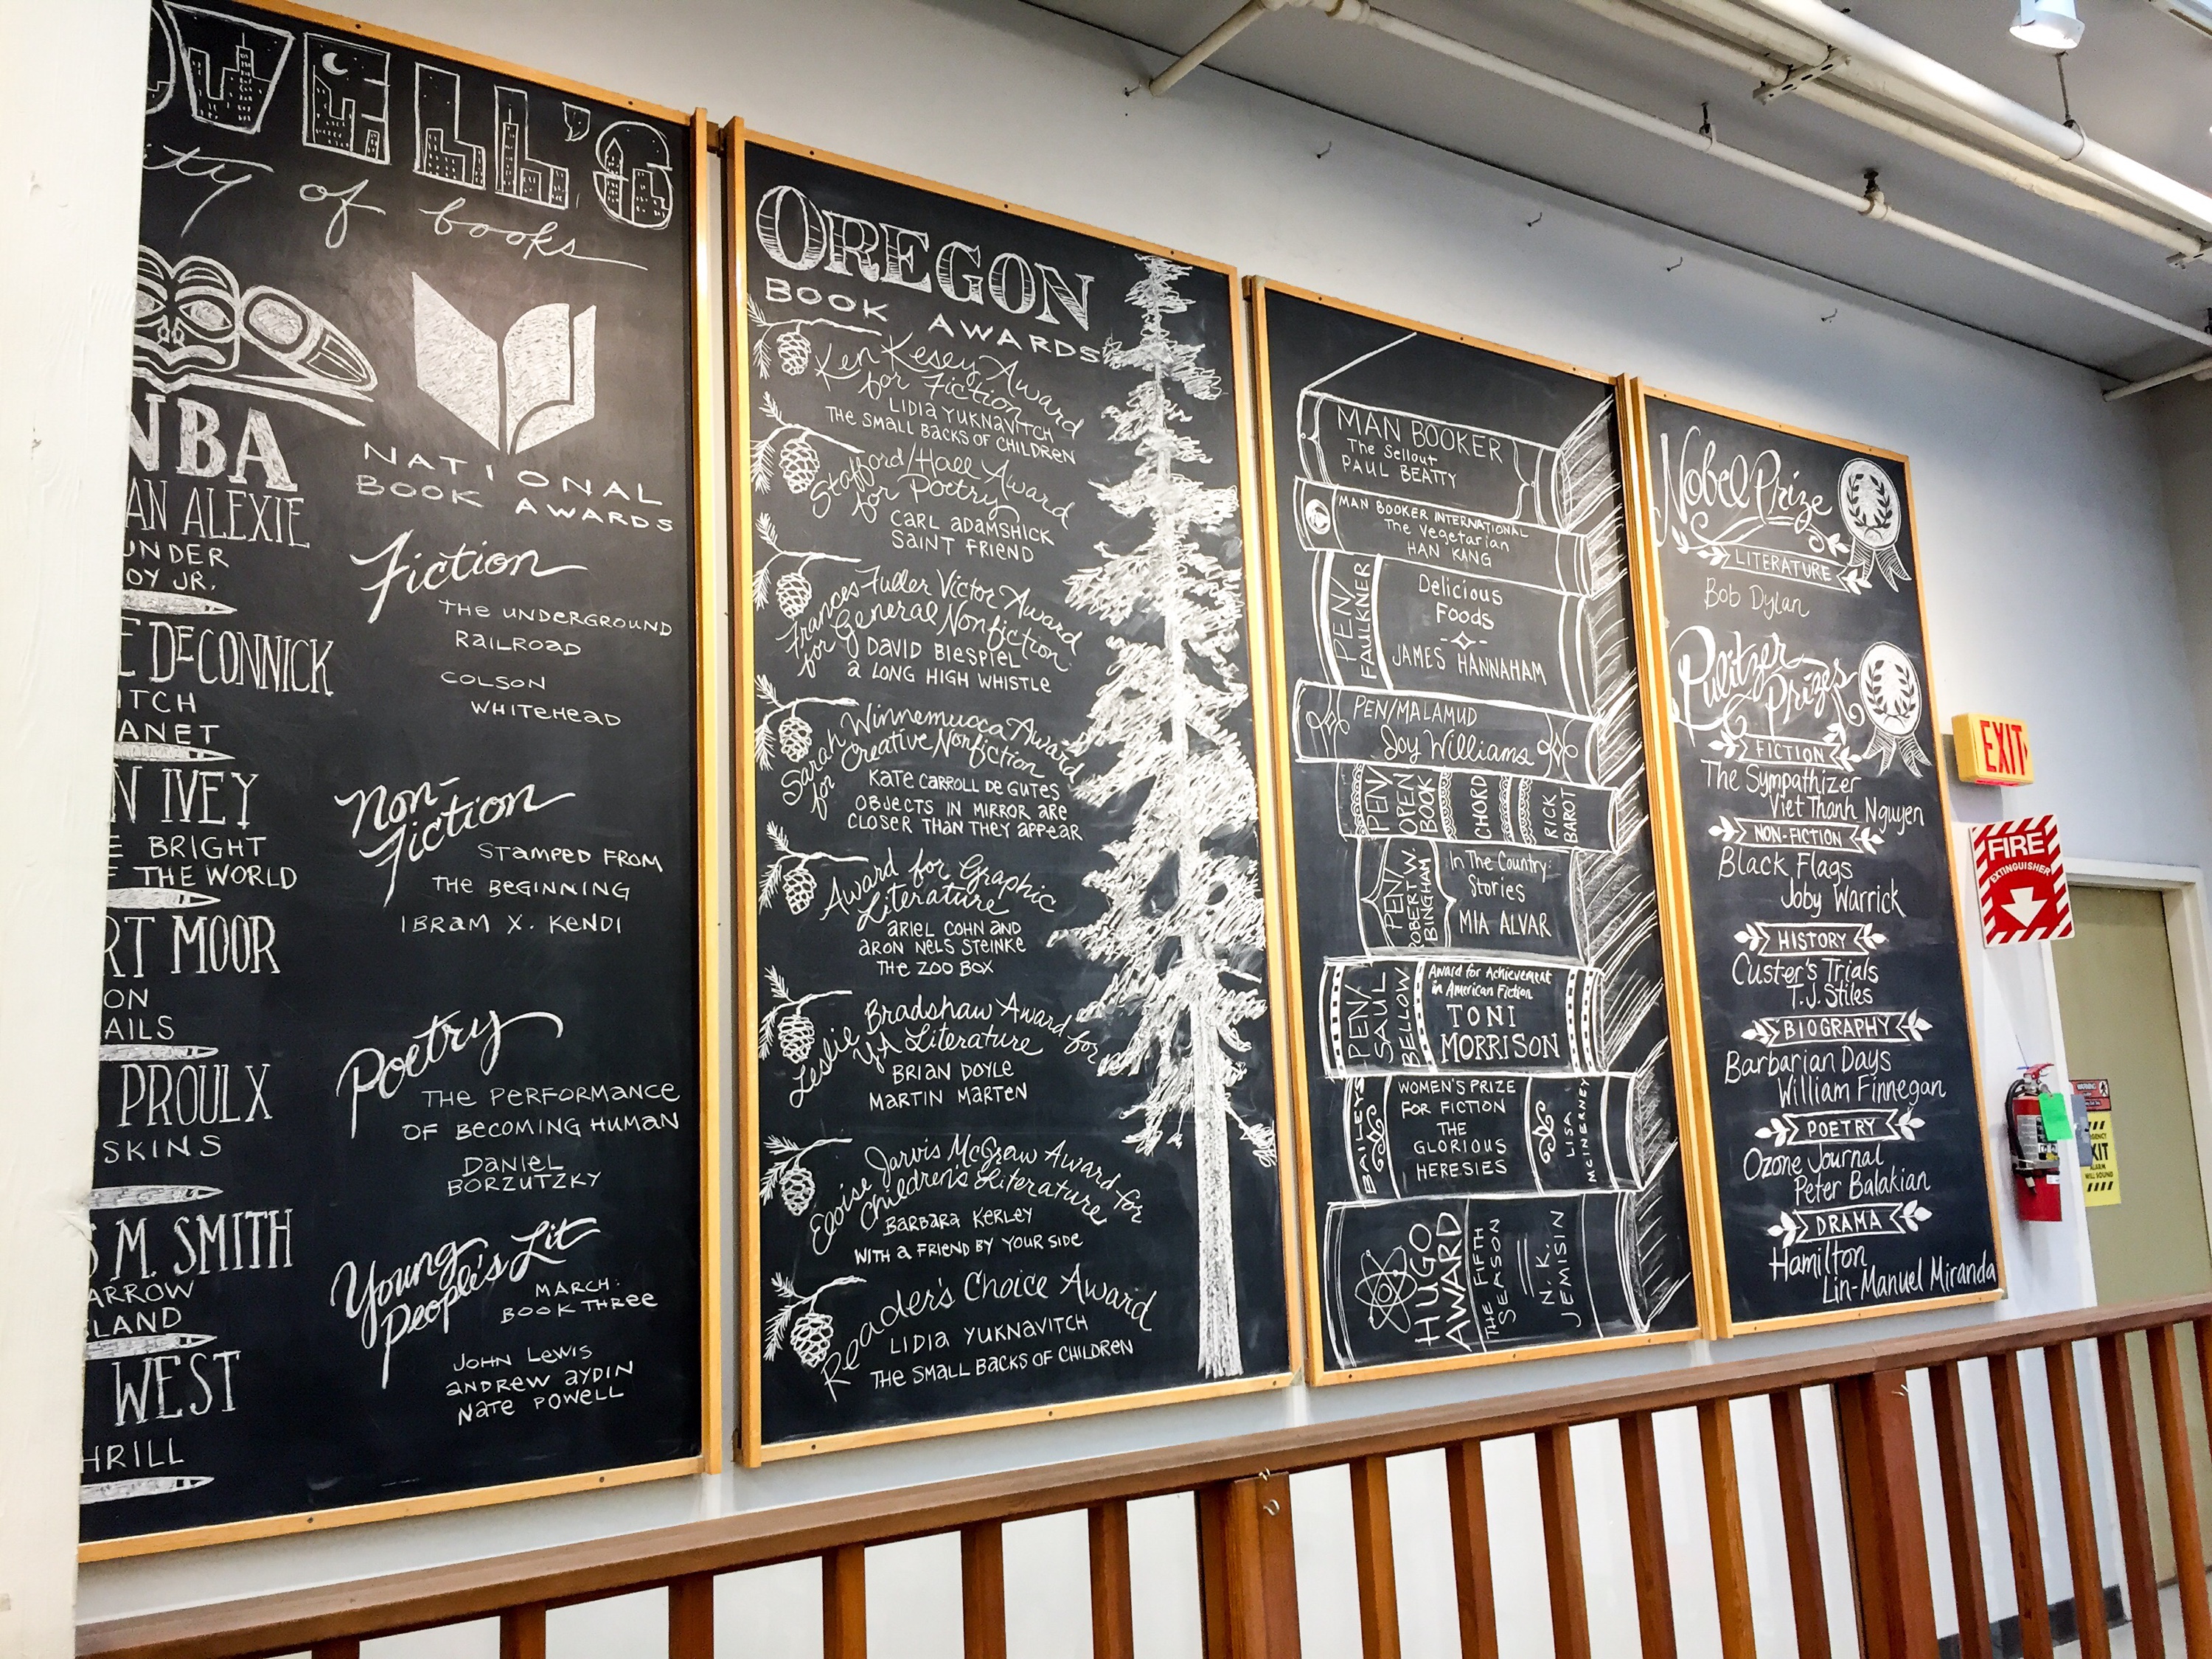 OWELL'S
ity of books
NBA
AN ALEXIE
UNDER
OY JR.
E DECONNICK
ITCH
ANET
N IVEY
E BRIGHT
F THE WORLD
RT MOOR
ON
AILS
PROULX
SKINS
S M. SMITH
ARROW
LAND
WEST
HRILL
NATIONAL
BOOK AWARDS
Fiction
THE UNDERGROUND
RAILROAD
COLSON
WHITEHEAD
Non-
Fiction
STAMPED FROM
THE BEGINNING
IBRAM X. KENDI
Poetry
THE PERFORMANCE
OF BECOMING HUMAN
DANIEL
BORZUTZKY
Young
People's Lit
MARCH:
BOOK THREE
JOHN LEWIS
ANDREW AYDIN
NATE POWELL
OREGON
BOOK AWARDS
Ken Kesey Award
for Fiction
LIDIA YUKNAVITCH
THE SMALL BACKS OF CHILDREN
Stafford/Hall Award
for Poetry
CARL ADAMSHICK
SAINT FRIEND
Frances Fuller Victor Award
for General Nonfiction
DAVID BIESPIEL
A LONG HIGH WHISTLE
Sarah Winnemucca Award
for Creative Nonfiction
KATE CARROLL DE GUTES
OBJECTS IN MIRROR ARE
CLOSER THAN THEY APPEAR
Award for Graphic
Literature
ARIEL COHN AND
ARON NELS STEINKE
THE ZOO BOX
Leslie Bradshaw Award for
YA Literature
BRIAN DOYLE
MARTIN MARTEN
Eloise Jarvis McGraw Award for
Children's Literature
BARBARA KERLEY
WITH A FRIEND BY YOUR SIDE
Reader's Choice Award
LIDIA YUKNAVITCH
THE SMALL BACKS OF CHILDREN
MAN BOOKER
The Sellout
PAUL BEATTY
MAN BOOKER INTERNATIONAL
The Vegetarian
HAN KANG
PEN/
FAULKNER
Delicious
Foods
JAMES HANNAHAM
PEN/MALAMUD
Joy Williams
PEN/
OPEN
BOOK
CHORD
RICK
BAROT
PEN/
ROBERT W.
BINGHAM
In The Country:
Stories
MIA ALVAR
PEN/
SAUL
BELLOW
Award for Achievement
in American Fiction
TONI
MORRISON
BAILEY'S
WOMEN'S PRIZE
FOR FICTION
THE
GLORIOUS
HERESIES
LISA
MCINERNEY
HUGO
AWARD
THE FIFTH
SEASON
N. K.
JEMISIN
Nobel Prize
LITERATURE
Bob Dylan
Pulitzer
Prizes
FICTION
The Sympathizer
Viet Thanh Nguyen
NON-FICTION
Black Flags
Joby Warrick
HISTORY
Custer's Trials
T.J. Stiles
BIOGRAPHY
Barbarian Days
William Finnegan
POETRY
Ozone Journal
Peter Balakian
DRAMA
Hamilton
Lin-Manuel Miranda
EXIT
FIRE
EXTINGUISHER
WARNING
GENCY
XIT
ALARM
WILL SOUND